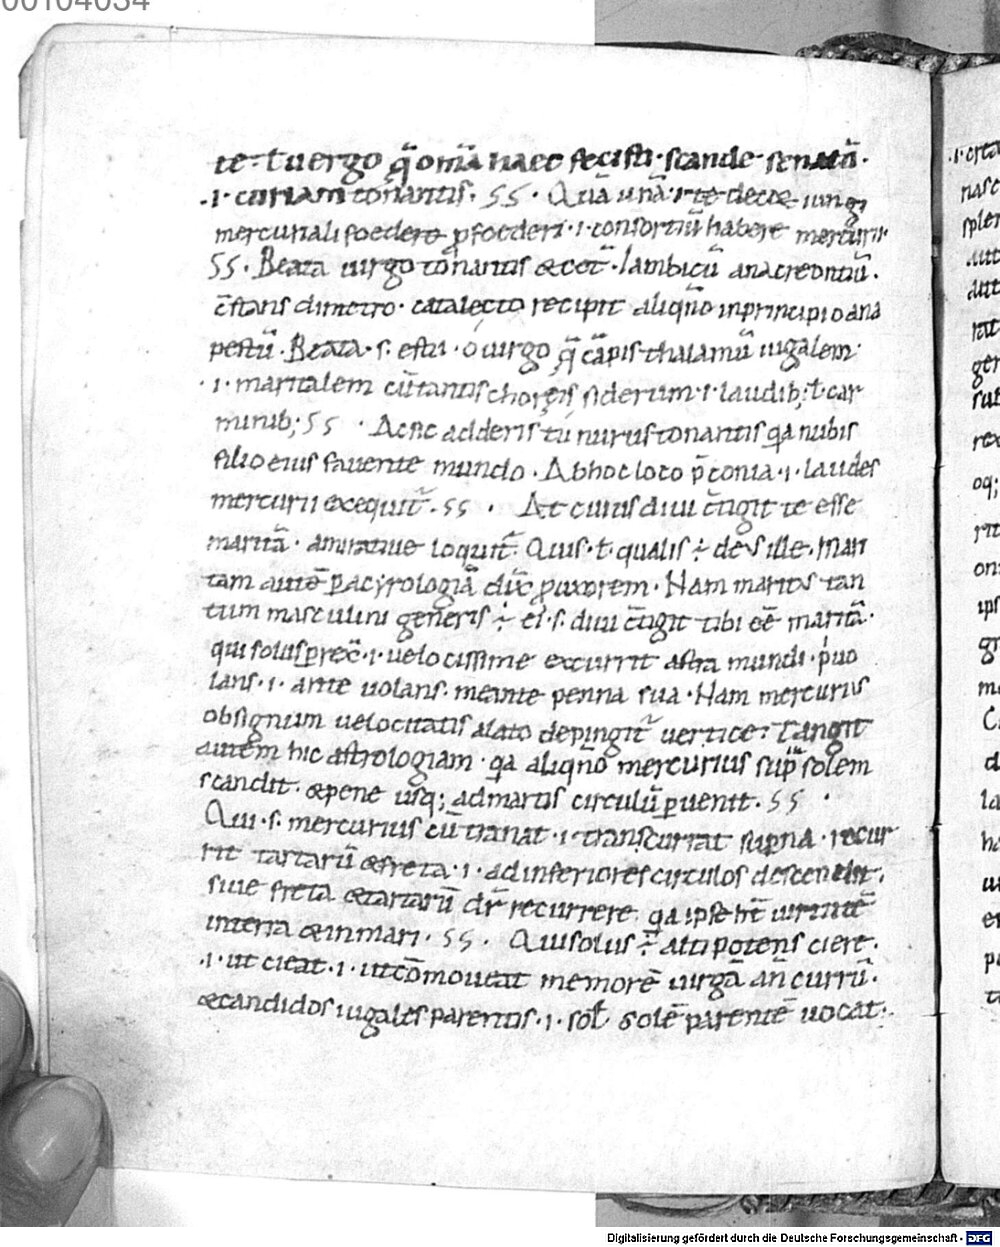 00104034
te. t uergo q̅ om̅a haec fecisti. scande senatū.
.i. curiam tonantis. SS. Quā unā .i. te decet iungi
mercuriali foedere p̱ foederi .i. consortiū habere mercurii.
SS. Beata uirgo tonantis &cet̄. Iambicū anacreontiū.
c̄stans dimetro. catalecto recipit aliqn̄o in principio ana
pestū. Beata .s. es tu. o uirgo q̅ cāpis thalamū iugalem
.i. maritalem cū tantis choreis siderum .i. laudib; t̵ car
minib; SS. Ac sic adderis tū nurus tonantis qa nubis
filio eius fauente mundo. Ab hoc loco p̄conia .i. laudes
mercurii exequit̄. SS. At cuius diui c̄tigit te esse
maritā. amiratiue loquit̄. Cuius. t̵. qualis ÷ deus ille. Mari
tam autē p̱ acyrologiā dix̄ p̱ uxorem. Nam maritus tan
tum masculini generis ÷ ei .s. diui c̄tigit tibi eē maritā.
qui solus p̱rex̄ .i. uelocissime excurrit astra mundi. p̄uo
lans .i. ante uolans. meante penna sua. Nam mercurius
ob signum uelocitatis alato depingit̄ uertice. Tangit
autem hic astrologiam. qa aliqn̄o mercurius sup̱ solem
scandit. & pene usq; ad martis circulū p̱uenit. SS.
Qui .s. mercurius cū tranat .i. transcurrat superna. recur
rit tartarū & freta .i. ad inferiores circulos descendit.
siue freta & tartarū dr̄ recurrere. qa ipse ht̄ uirtutē
in terra & in mari. SS. Qui solus ÷ atti potens ciere.
.i. ut cieat .i. ut cōmoueat memorē uirgā an̄ currū.
& candidos iugales parentis .i. sol̄. Solē parentē uocat.
.i. crea
nasc
splen
aut
rat
gen
sub
rex
oq;
rit
on
ips
gr
me
C
d
la
ha
er
pa
Digitalisierung gefördert durch die Deutsche Forschungsgemeinschaft - DFG